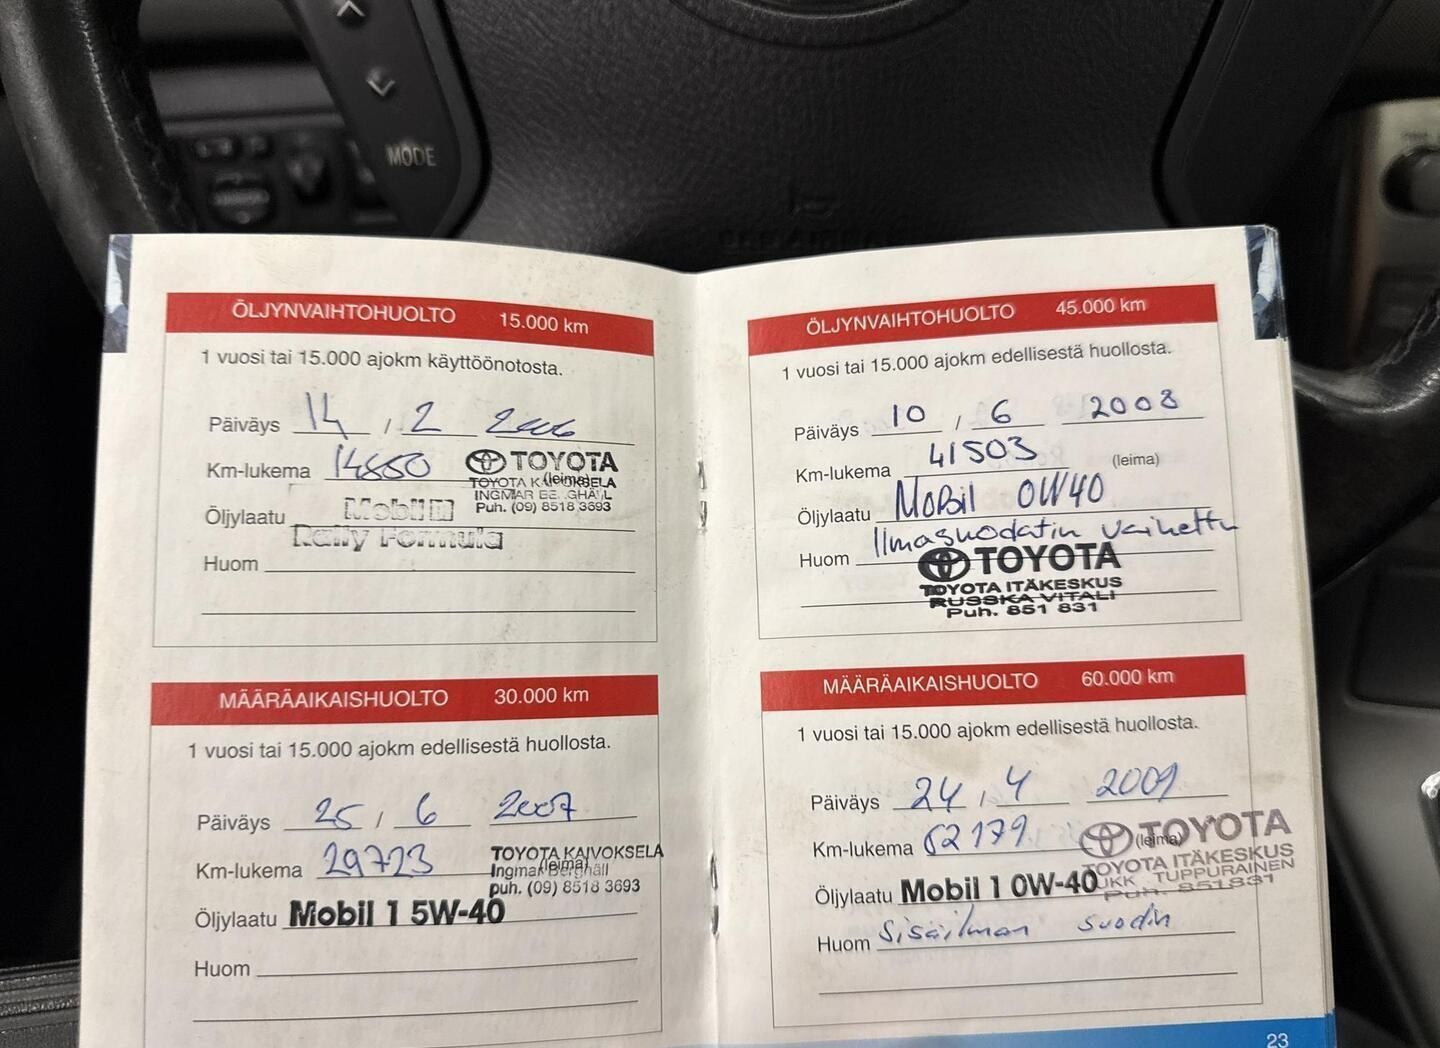 MODE
ÖLJYNVAIHTOHUOLTO 15.000 km
1 vuosi tai 15.000 ajokm käyttöönotosta.
Päiväys 14 / 2 2006
Km-lukema 14850 (leima)
TOYOTA
TOYOTA KAIVOKSELA
INGMAR BERGHÄLL
Puh. (09) 8518 3693
Öljylaatu Mobil 1
Rally Formula
Huom
MÄÄRÄAIKAISHUOLTO 30.000 km
1 vuosi tai 15.000 ajokm edellisestä huollosta.
Päiväys 25 / 6 2007
Km-lukema 29723 (leima)
TOYOTA KAIVOKSELA
Ingmar Berghäll
puh. (09) 8518 3693
Öljylaatu Mobil 1 5W-40
Huom
ÖLJYNVAIHTOHUOLTO 45.000 km
1 vuosi tai 15.000 ajokm edellisestä huollosta.
Päiväys 10 / 6 2008
Km-lukema 41503 (leima)
Öljylaatu Mobil 0W40
Huom Ilmasuodatin vaihettu
TOYOTA
TOYOTA ITÄKESKUS
RUSSKA VITALI
Puh. 851 831
MÄÄRÄAIKAISHUOLTO 60.000 km
1 vuosi tai 15.000 ajokm edellisestä huollosta.
Päiväys 24 / 4 2009
Km-lukema 52179 (leima)
TOYOTA
TOYOTA ITÄKESKUS
TUPPURAINEN
Puh. 851831
Öljylaatu Mobil 1 0W-40
Huom Sisäilman suodin
23